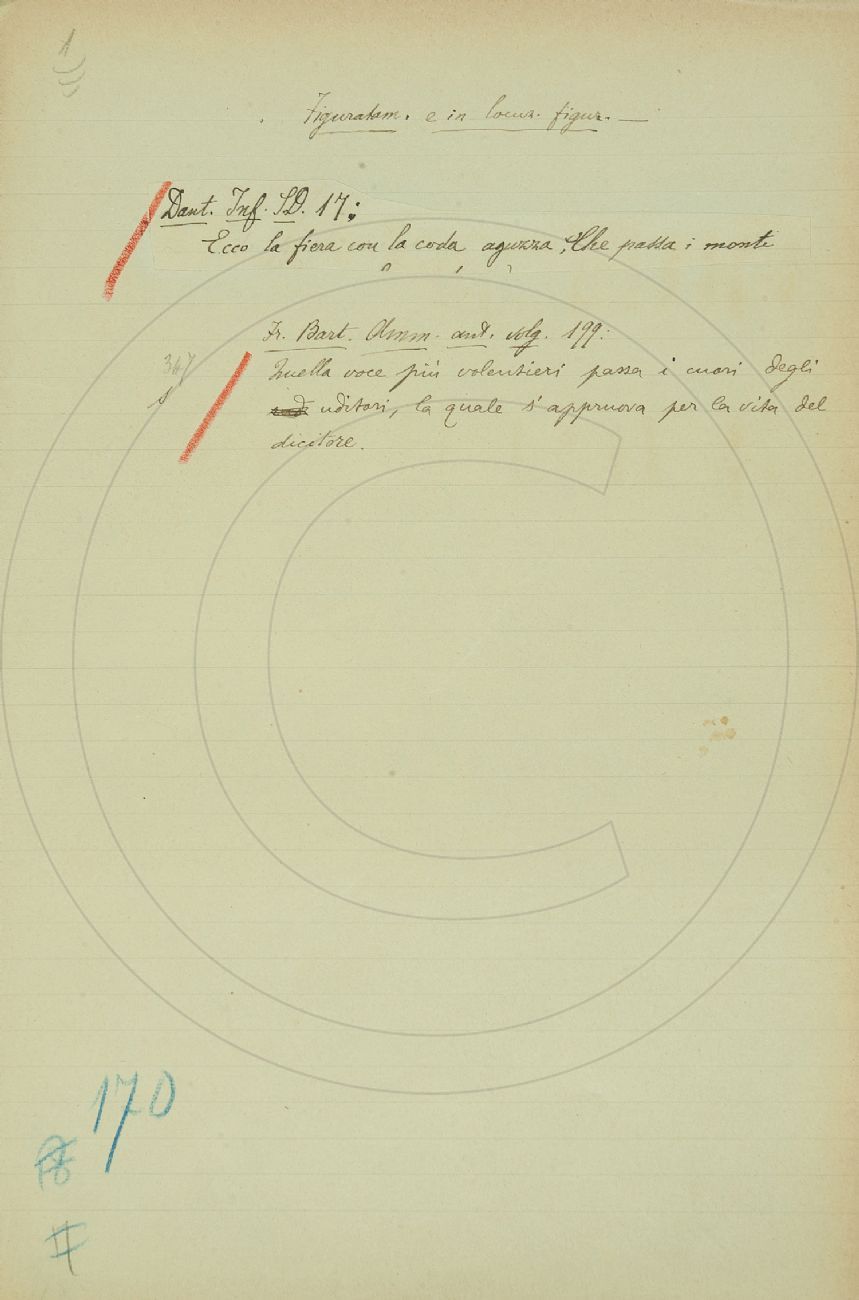 1
Figuratam. e in locuz. figur. —
Dant. Inf. SD. 17:
Ecco la fiera con la coda aguzza, Che passa i monti
Fr. Bart. Amm. ant. volg. 199:
367
Quella voce più volentieri passa i cuori degli
s
uditori, la quale s'appruova per la vita del
dicitore.
170
II